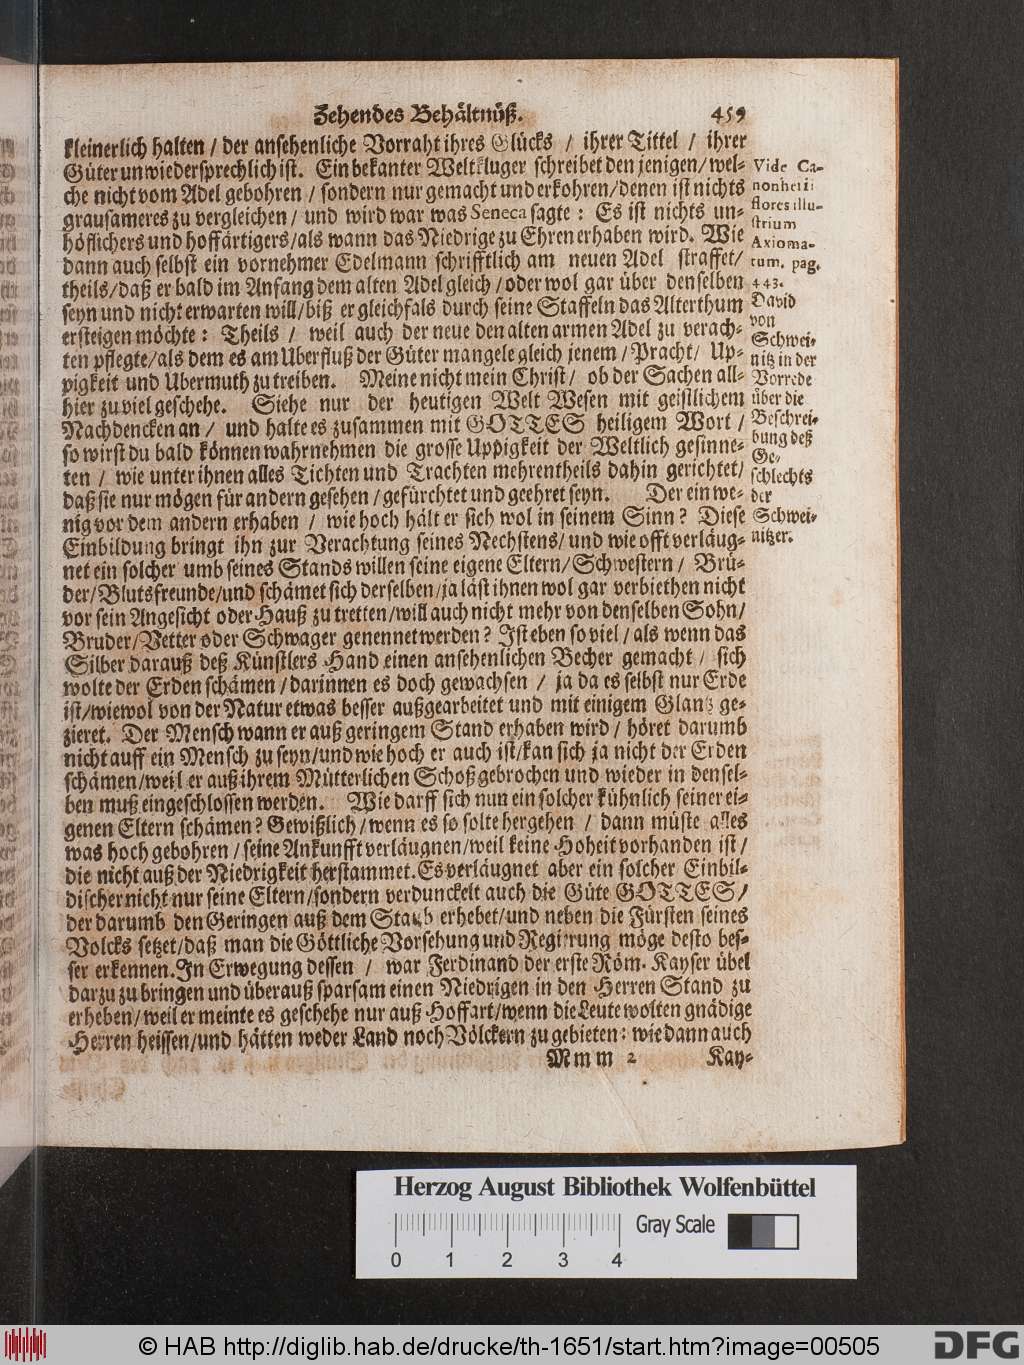 Zehendes Behältnüß. 459
kleinerlich halten / der ansehenliche Vorraht ihres Glücks / ihrer Tittel / ihrer
Güter unwiedersprechlich ist. Ein bekanter Weltkluger schreibet den jenigen / wel-
che nicht vom Adel gebohren / sondern nur gemacht und erkohren / denen ist nichts
grausameres zu vergleichen / und wird war was Seneca sagte : Es ist nichts un-
höflichers und hoffärtigers / als wann das Niedrige zu Ehren erhaben wird. Wie
dann auch selbst ein vornehmer Edelmann schrifftlich am neuen Adel straffet /
theils / daß er bald im Anfang dem alten Adel gleich / oder wol gar über denselben
seyn und nicht erwarten will / biß er gleichfals durch seine Staffeln das Alterthum
ersteigen möchte : Theils / weil auch der neue den alten armen Adel zu verach-
ten pflegte / als dem es am Uberfluß der Güter mangele gleich jenem / Pracht / Up-
pigkeit und Ubermuth zu treiben. Meine nicht mein Christ / ob der Sachen all-
hier zu viel geschehe. Siehe nur der heutigen Welt Wesen mit geistlichem
Nachdencken an / und halte es zusammen mit GOTTES heiligem Wort /
so wirst du bald können wahrnehmen die grosse Uppigkeit der Weltlich gesinne-
ten / wie unter ihnen alles Tichten und Trachten mehrentheils dahin gerichtet /
daß sie nur mögen für andern gesehen / gefürchtet und geehret seyn. Der ein we-
nig vor dem andern erhaben / wie hoch hält er sich wol in seinem Sinn ? Diese
Einbildung bringt ihn zur Verachtung seines Nechstens / und wie offt verläug-
net ein solcher umb seines Stands willen seine eigene Eltern / Schwestern / Brü-
der / Blutsfreunde / und schämet sich derselben / ja läst ihnen wol gar verbiethen nicht
vor sein Angesicht oder Hauß zu tretten / will auch nicht mehr von denselben Sohn /
Bruder / Vetter oder Schwager genennet werden ? Ist eben so viel / als wenn das
Silber darauß deß Künstlers Hand einen ansehenlichen Becher gemacht / sich
wolte der Erden schämen / darinnen es doch gewachsen / ja da es selbst nur Erde
ist / wiewol von der Natur etwas besser außgearbeitet und mit einigem Glantz ge-
zieret. Der Mensch wann er auß geringem Stand erhaben wird / höret darumb
nicht auff ein Mensch zu seyn / und wie hoch er auch ist / kan sich ja nicht der Erden
schämen / weil er auß ihrem Mütterlichen Schoß gebrochen und wieder in densel-
ben muß eingeschlossen werden. Wie darff sich nun ein solcher kühnlich seiner ei-
genen Eltern schämen ? Gewißlich / wenn es so solte hergehen / dann müste alles
was hoch gebohren / seine Ankunfft verläugnen / weil keine Hoheit vorhanden ist /
die nicht auß der Niedrigkeit herstammet. Es verläugnet aber ein solcher Einbil-
discher nicht nur seine Eltern / sondern verdunckelt auch die Güte GOTTES /
der darumb den Geringen auß dem Staub erhebet / und neben die Fürsten seines
Volcks setzet / daß man die Göttliche Vorsehung und Regierung möge desto bes-
ser erkennen. In Erwegung dessen / war Ferdinand der erste Röm. Kayser übel
darzu zu bringen und überauß sparsam einen Niedrigen in den Herren Stand zu
erheben / weil er meinte es geschehe nur auß Hoffart / wenn die Leute wolten gnädige
Herren heissen / und hätten weder Land noch Völckern zu gebieten : wie dann auch
Mmm 2 Kay-
Vide Ca-
nonherii
flores illu-
strium
Axioma-
tum. pag.
443.
David
von
Schwei-
nitz in der
Vorrede
über die
Beschrei-
bung deß
Ge-
schlechts
der
Schwei-
nitzer.
Herzog August Bibliothek Wolfenbüttel
0 1 2 3 4
Gray Scale
© HAB http://diglib.hab.de/drucke/th-1651/start.htm?image=00505
DFG